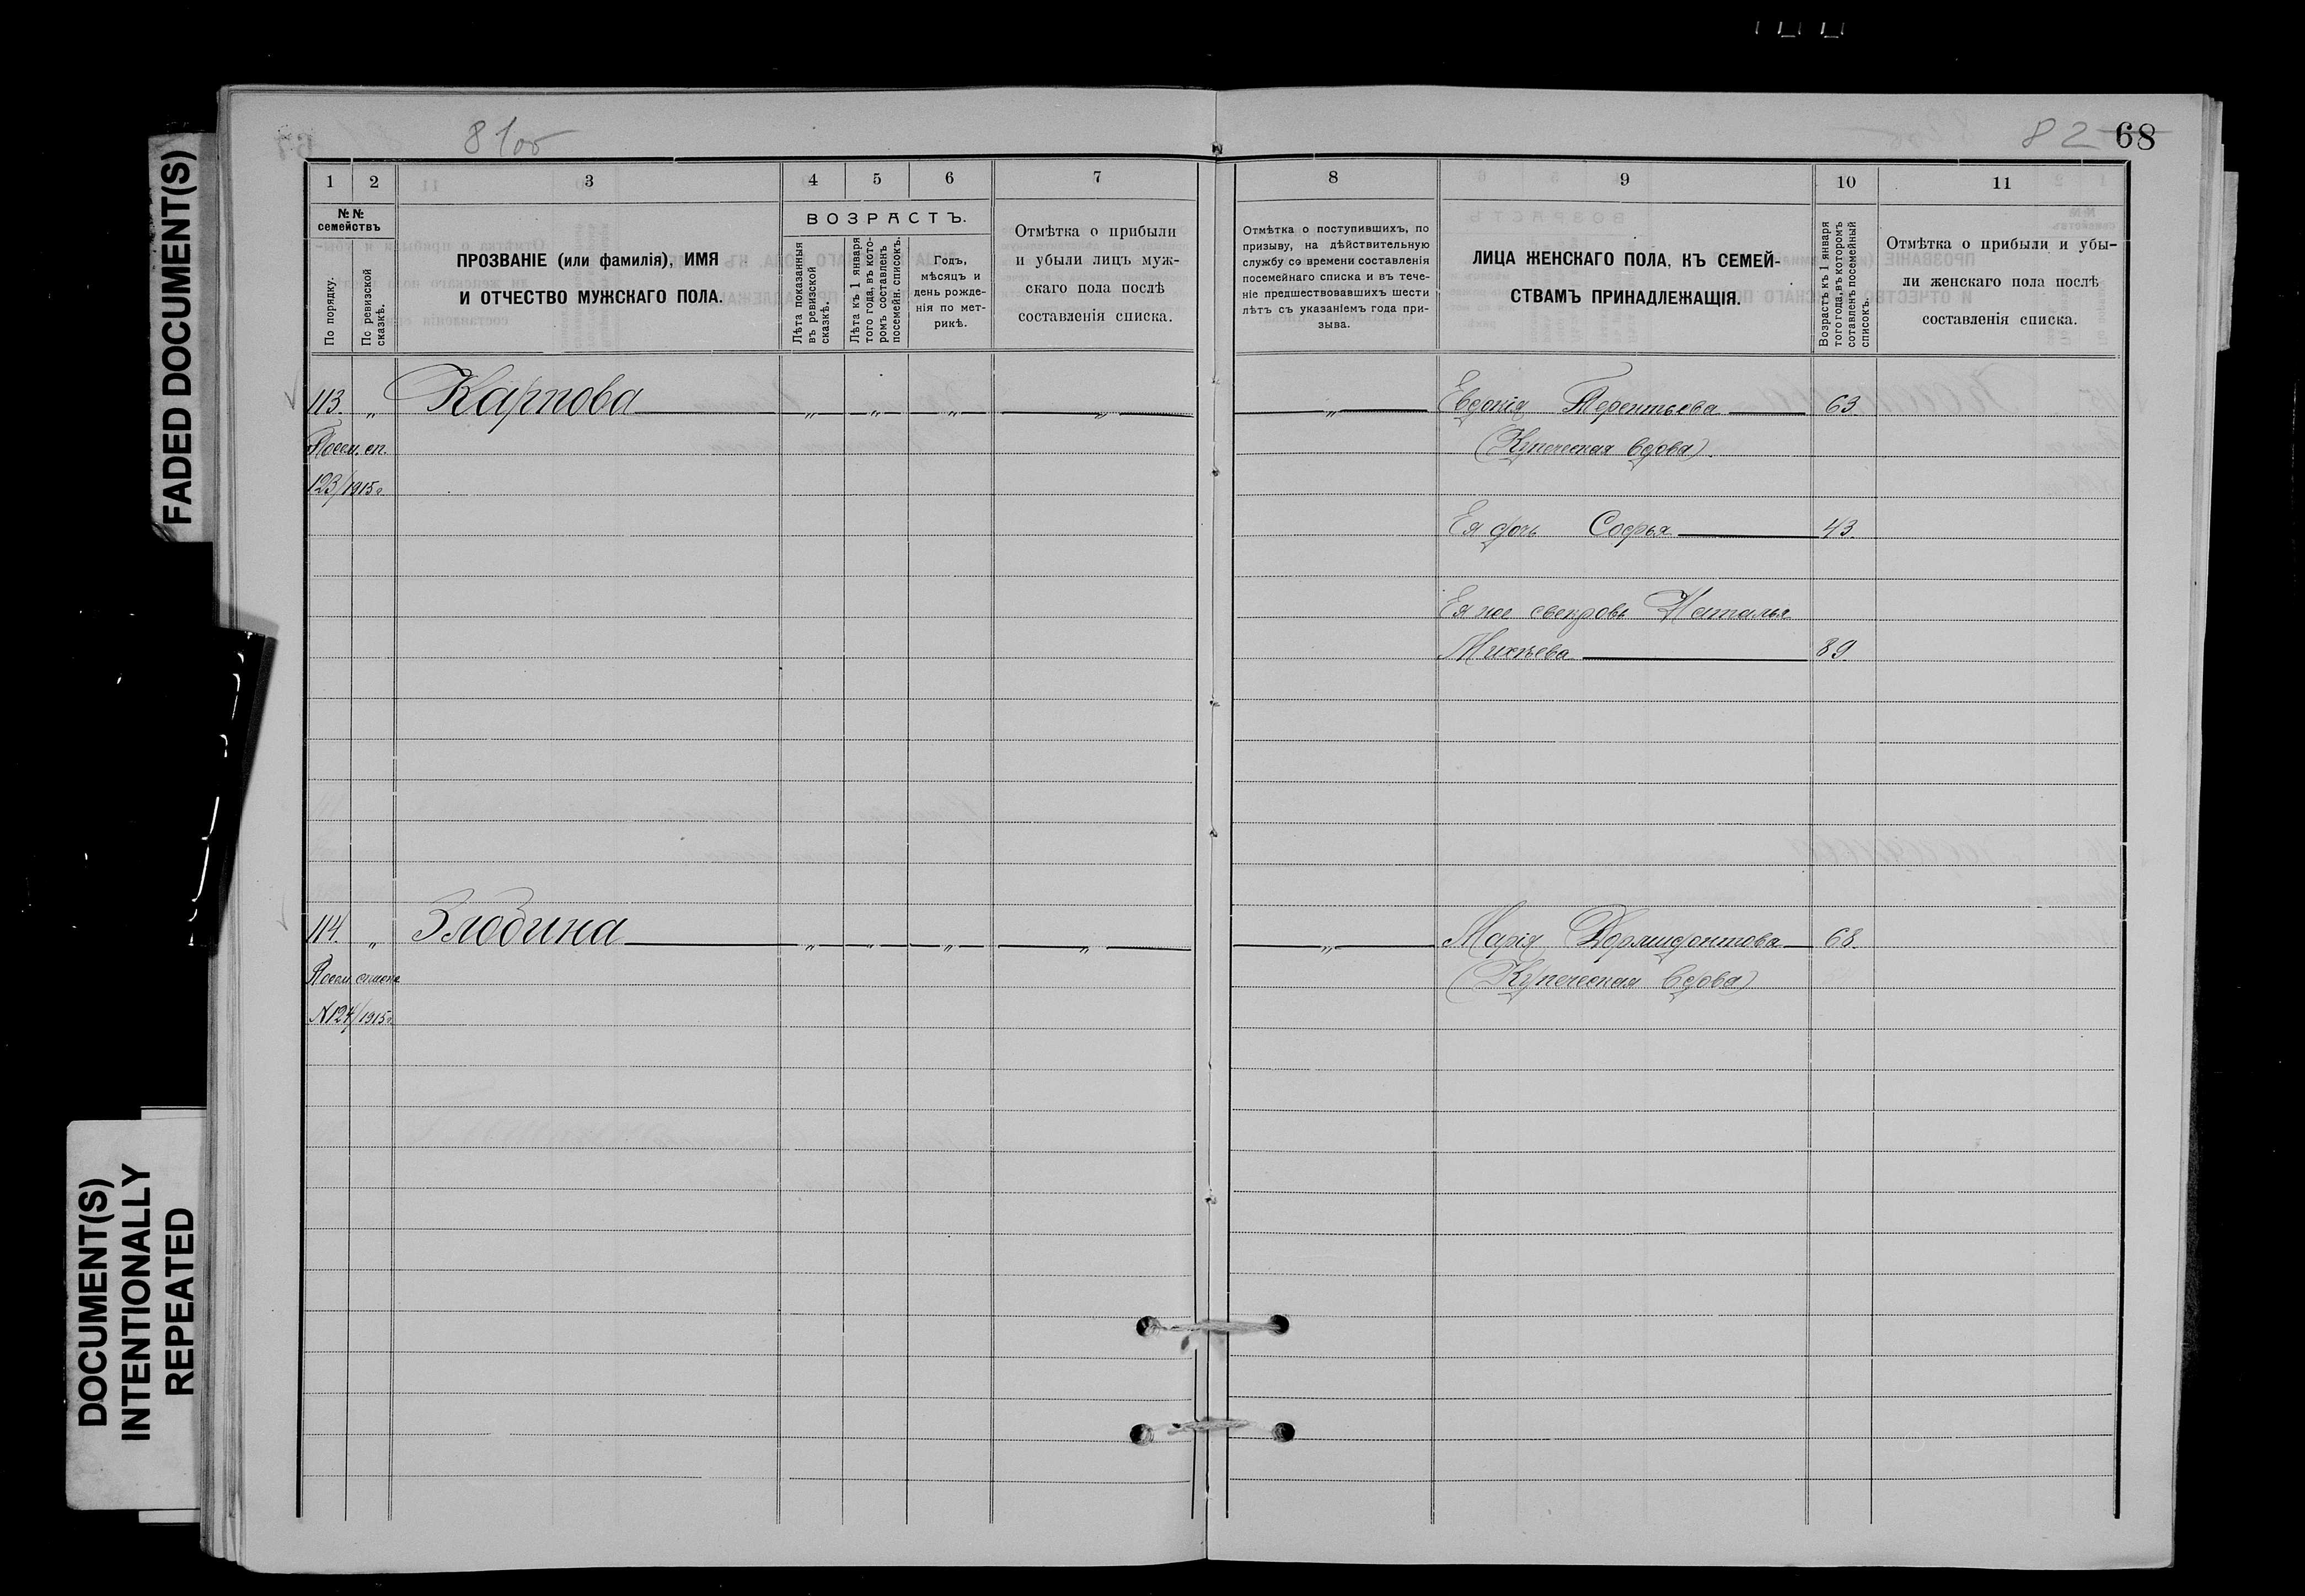 FADED DOCUMENT(S)
DOCUMENT(S)
INTENTIONALLY
REPEATED
81об
1 2 3 4 5 6 7
№№
семействъ
По порядку.
По ревизской
сказкѣ.
ПРОЗВАНІЕ (или фамилія), ИМЯ
И ОТЧЕСТВО МУЖСКАГО ПОЛА.
ВОЗРАСТЪ.
Лѣта показанныя
въ ревизской
сказкѣ.
Лѣта къ 1 января
того года, въ кото-
ромъ составленъ
посемейн. списокъ.
Годъ,
мѣсяцъ и
день рожде-
нія по мет-
рикѣ.
Отмѣтка о прибыли
и убыли лицъ муж-
скаго пола послѣ
составленія списка.
113. „ Карпова „ „ „ „
Посем. сп.
123/1915г
114. „ Злобина „ „ „ „
Посем. списка
N124/1915г
82 68
8 9 10 11
Отмѣтка о поступившихъ, по
призыву, на дѣйствительную
службу со времени составленія
посемейнаго списка и въ тече-
ніе предшествовавшихъ шести
лѣтъ съ указаніемъ года при-
зыва.
ЛИЦА ЖЕНСКАГО ПОЛА, КЪ СЕМЕЙ-
СТВАМЪ ПРИНАДЛЕЖАЩІЯ.
Возрастъ къ 1 января
того года, въ которомъ
составленъ посемейный
списокъ.
Отмѣтка о прибыли и убы-
ли женскаго пола послѣ
составленія списка.
„ Евдокія Терентьева 63
(Купеческая вдова).
Ея дочь Софья 43.
Ея же свекровь Наталья
Михѣева 89.
„ Марія Дормидонтова 68.
(Купеческая вдова)